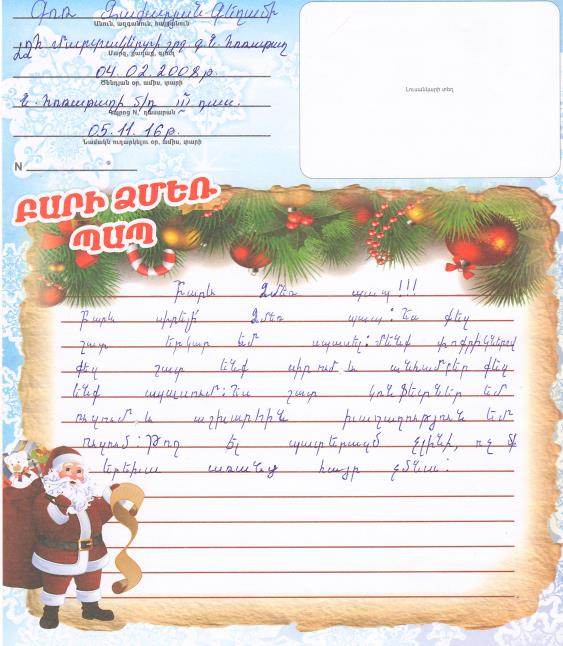 Գոռ Գաֆարյան Գեղամի
Անուն, ազգանուն, հայրանուն
ԼՂՀ Մարտակերտի շրջ գ. Ն. Հոռաթաղ
Մարզ, քաղաք, գյուղ
04.02.2008թ.
Ծննդյան օր, ամիս, տարի
Ն. Հոռաթաղի մ/դ III դաս.
Դպրոց N, դասարան
05.11.16թ.
Նամակն ուղարկելու օր, ամիս, տարի
N
Լուսանկարի տեղ
ԲԱՐԻ ՁՄԵՌ
ՊԱՊ
Բարև Ձմեռ պապ!!!
Բարև սիրելի Ձմեռ պապ: Ես քեզ
շատ երկար եմ սպասել: Մենք փոքրիկներով
քեզ շատ ենք սիրում և անհամբեր քեզ
ենք սպասում: Ես շատ կոնֆետներ եմ
ուզում և աշխարհին խաղաղություն եմ
ուզում: Թող էլ պատերազմ չլինի, ոչ մի
երեխա առանց հայր չմնա: